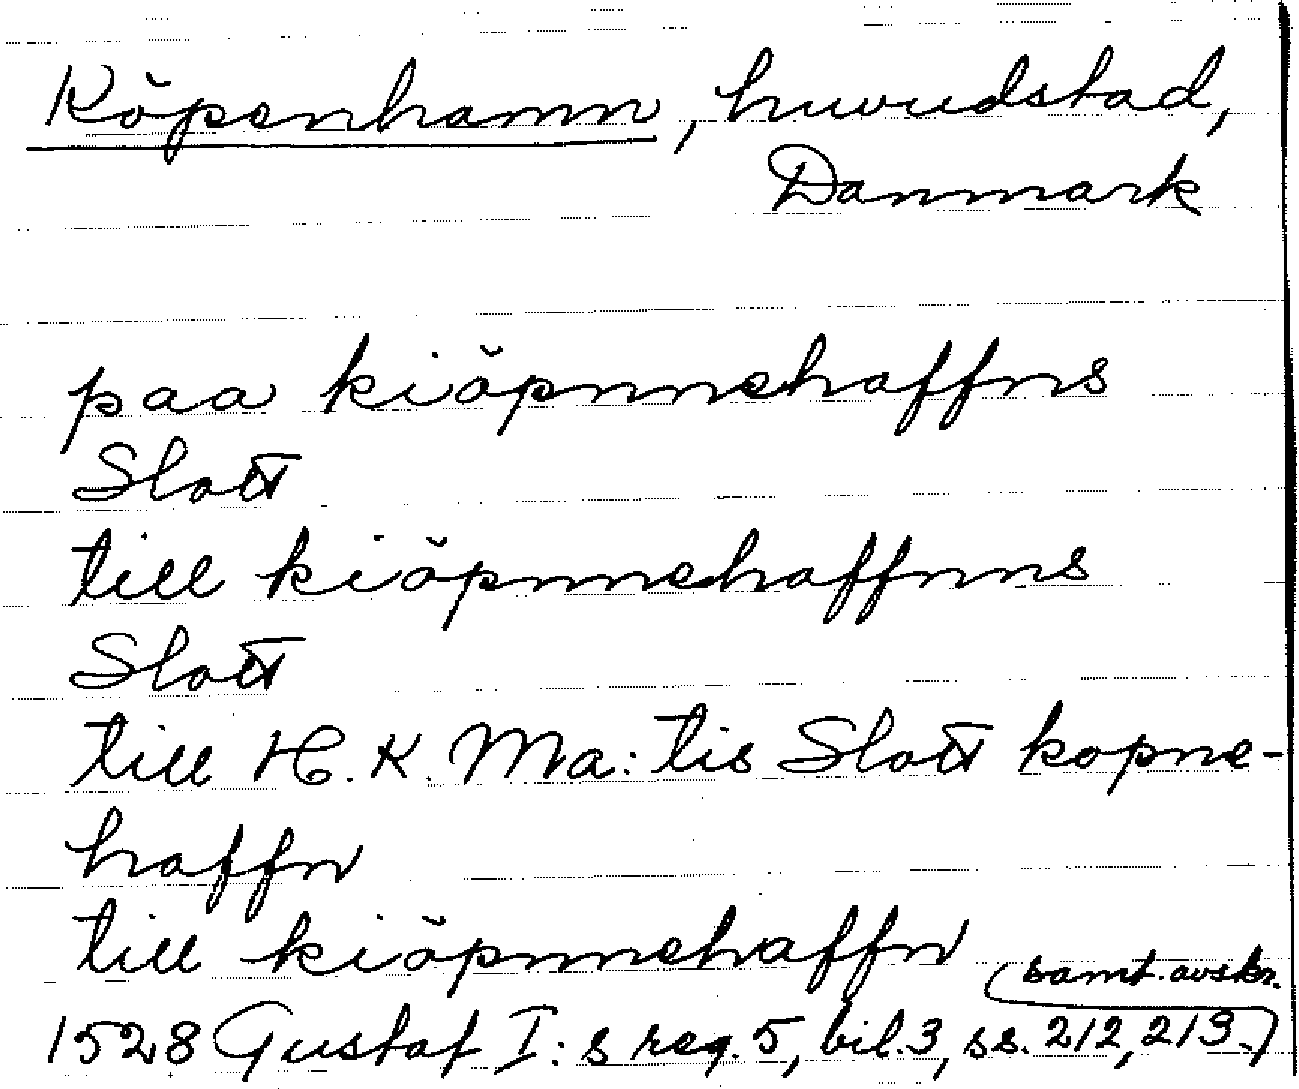 Köpenhamn, huvudstad,
Danmark
paa kiöpnnehaffns
Slott
till kiöpnnehaffnns
Slott
till H. K. Ma: tis Slott kopne-
haffn
till kiöpnnehaffn
(samt. avskr.
1528 Gustaf I:s reg. 5, bil. 3, ss. 212, 213.)